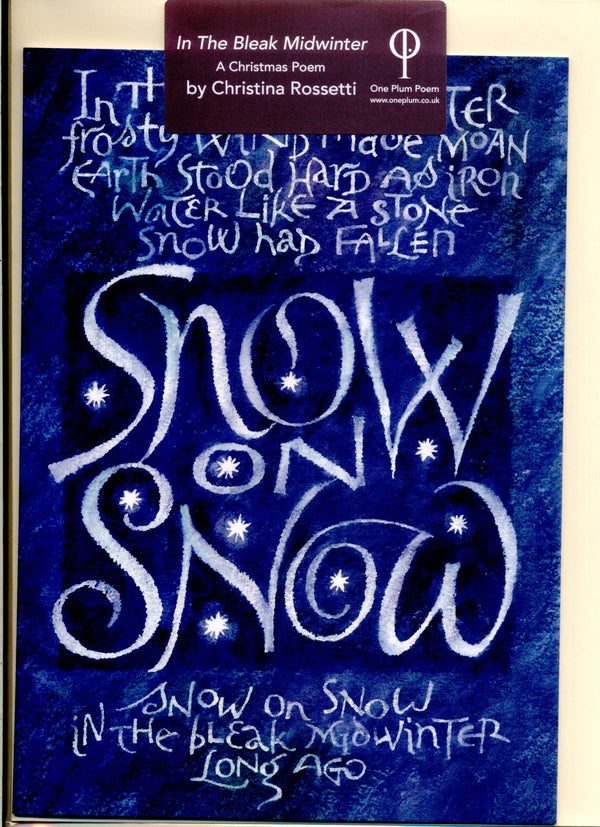 In The Bleak Midwinter
A Christmas Poem
by Christina Rossetti
One Plum Poem
www.oneplum.co.uk
In
frosty wind made moan
Earth stood hard as iron
Water like a stone
Snow had fallen
Snow
on
Snow
Snow on snow
In the bleak midwinter
Long ago